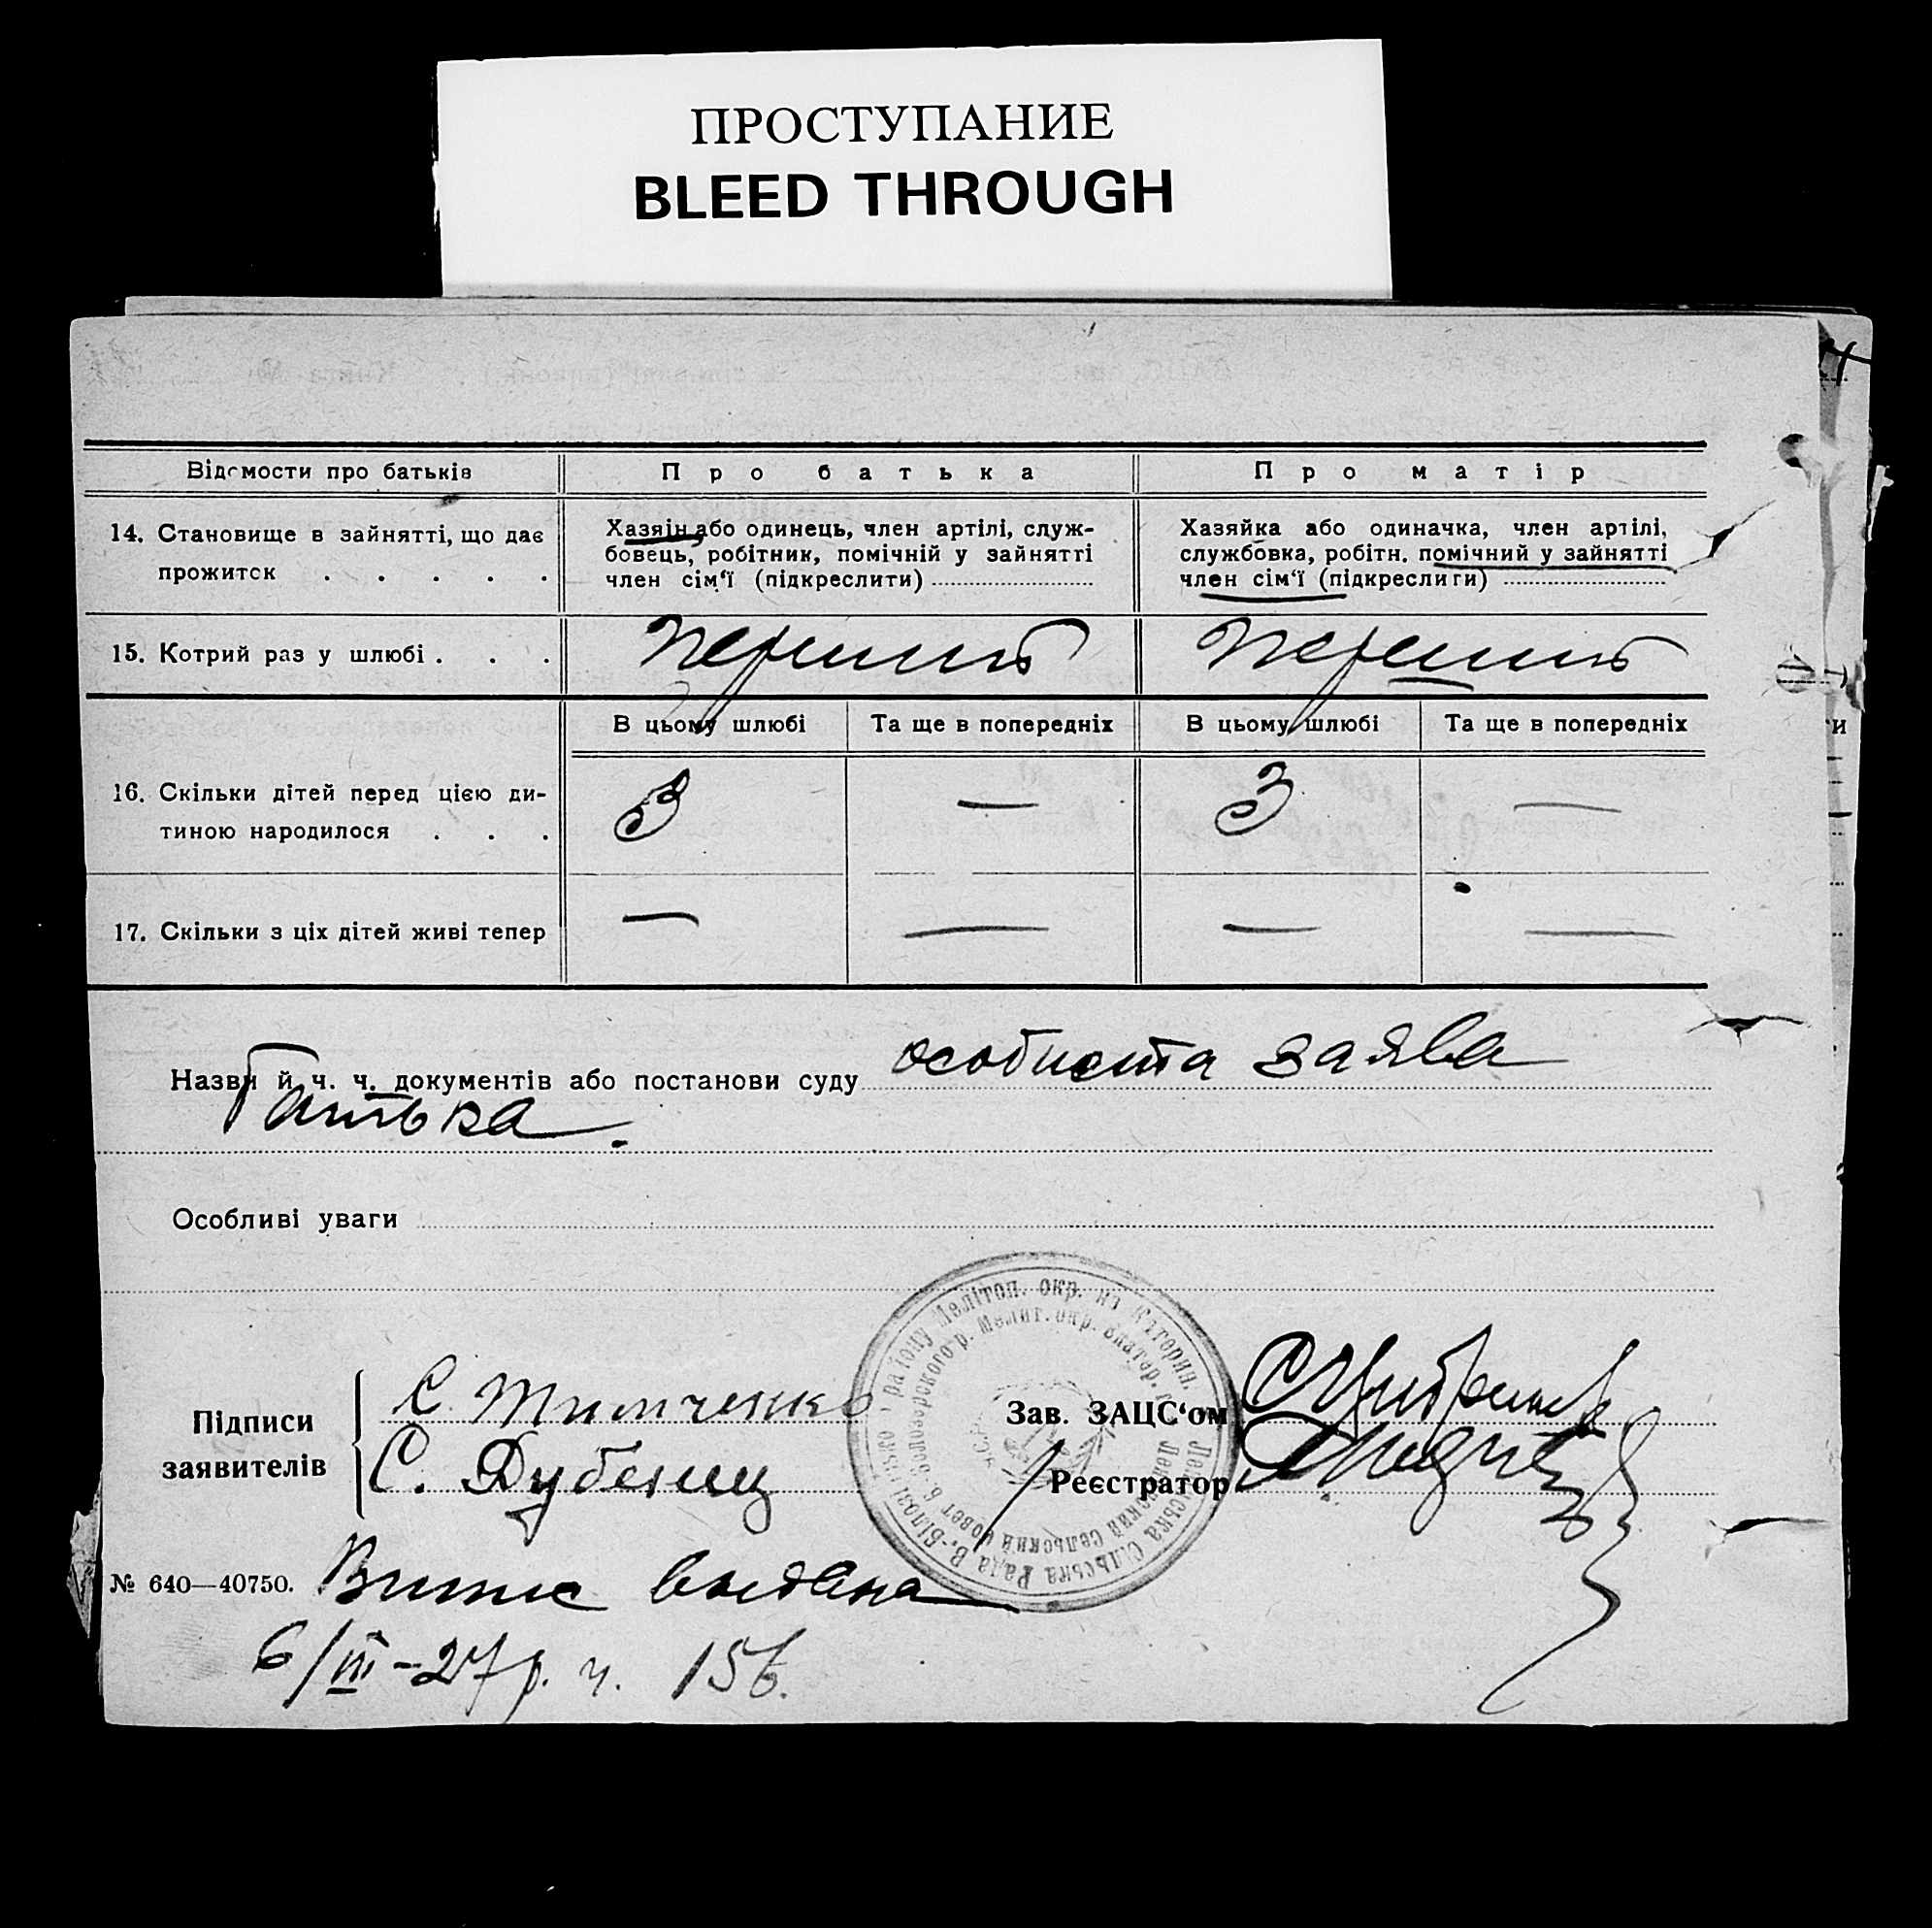 ПРОСТУПАНИЕ
BLEED THROUGH
Відомости про батьків
Про батька
Про матір
14. Становище в зайнятті, що дає
прожиток . . . . .
Хазяін або одинець, член артілі, служ-
бовець, робітник, помічній у зайнятті
член сім‘ї (підкреслити)
Хазяйка або одиначка, член артілі,
службовка, робітн. помічний у зайнятті
член сім‘ї (підкреслити)
15. Котрий раз у шлюбі . . .
перший
перший
В цьому шлюбі
Та ще в попередніх
В цьому шлюбі
Та ще в попередніх
16. Скільки дітей перед цією ди-
тиною народилося . . .
3 — 3 —
17. Скільки з ціх дітей живі тепер
— — — —
Назви й ч. ч. документів або постанови суду особиста заява
батька.
Особливі уваги
району Мелітоп. окр. на Катерин.
Сільська Рада В.-Білозі
р. Мелит. окр. Екатер. г.
сельский совет
Підписи
заявителів
С. Тимченко
С. Дубенец
Зав. ЗАЦС‘ом
Реєстратор
№ 640—40750.
Випис выдана
6/III-27 р. ч. 156.